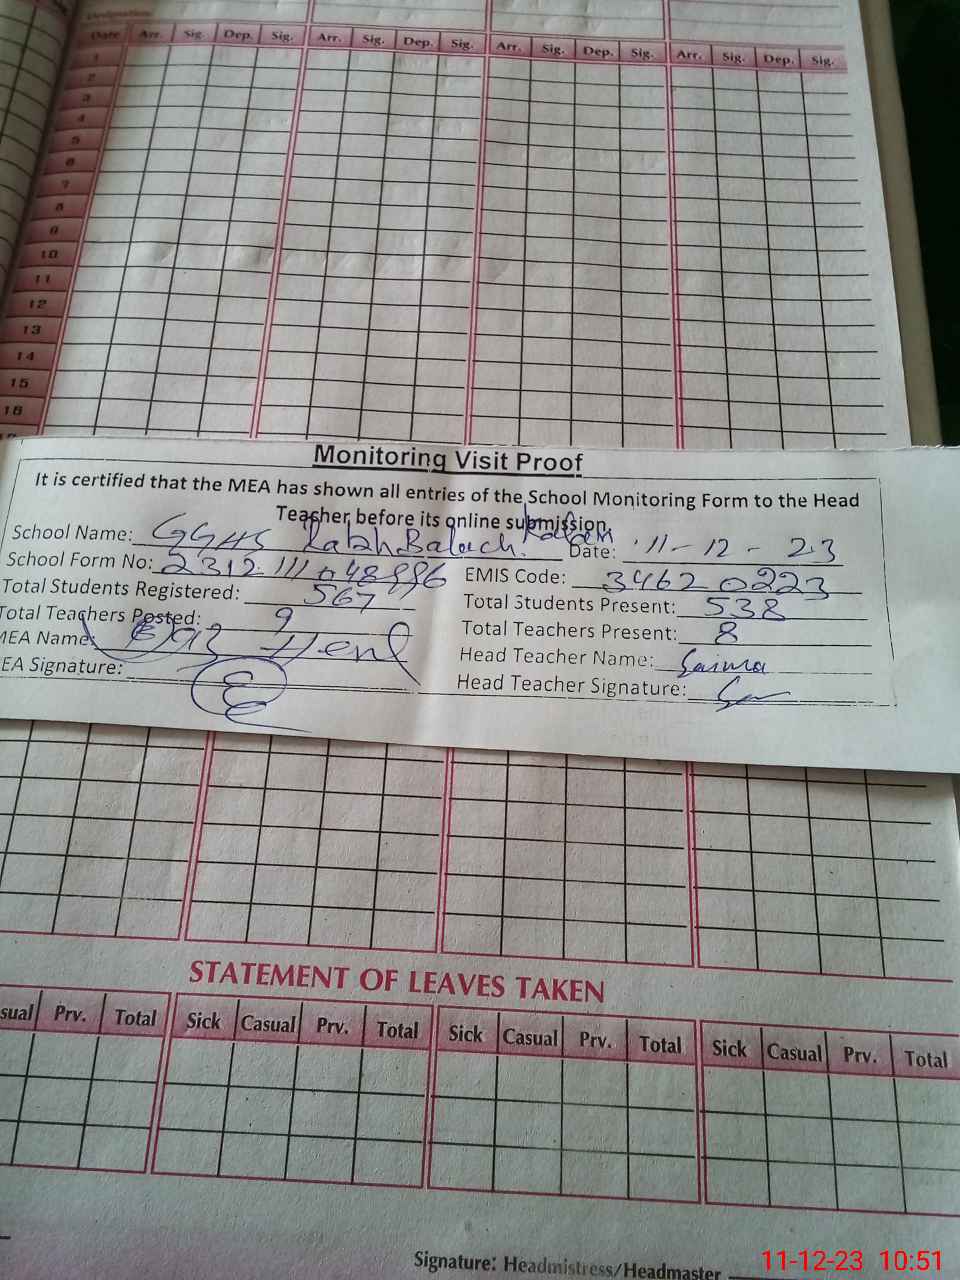 Designation
Date Arr. Sig. Dep. Sig. Arr. Sig. Dep. Sig. Arr. Sig. Dep. Sig. Arr. Sig. Dep. Sig.
1
2
3
4
5
6
7
8
9
10
11
12
13
14
15
16
Monitoring Visit Proof
It is certified that the MEA has shown all entries of the School Monitoring Form to the Head
Teacher before its online submission.
School Name: GGHS Rakh Balach Kalan Date: 11-12-23
School Form No: EMIS Code: 34620223
Total Students Registered: 567 Total Students Present: 538
Total Teachers Posted: 9 Total Teachers Present: 8
MEA Name: Head Teacher Name: Saima
EA Signature: Head Teacher Signature:
STATEMENT OF LEAVES TAKEN
sual Prv. Total Sick Casual Prv. Total Sick Casual Prv. Total Sick Casual Prv. Total
Signature: Headmistress/Headmaster
11-12-23 10:51